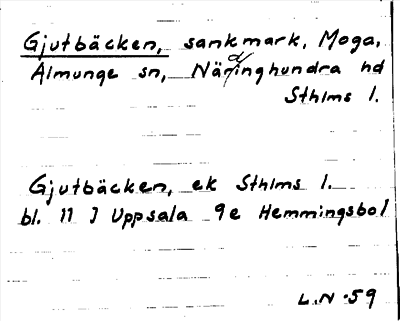 Gjutbäcken, sankmark, Moga,
Almunge sn, Närdinghundra hd
Sthlms l.
Gjutbäcken, ek Sthlms l.
bl. 11 J Uppsala 9e Hemmingsbol
L.N.59